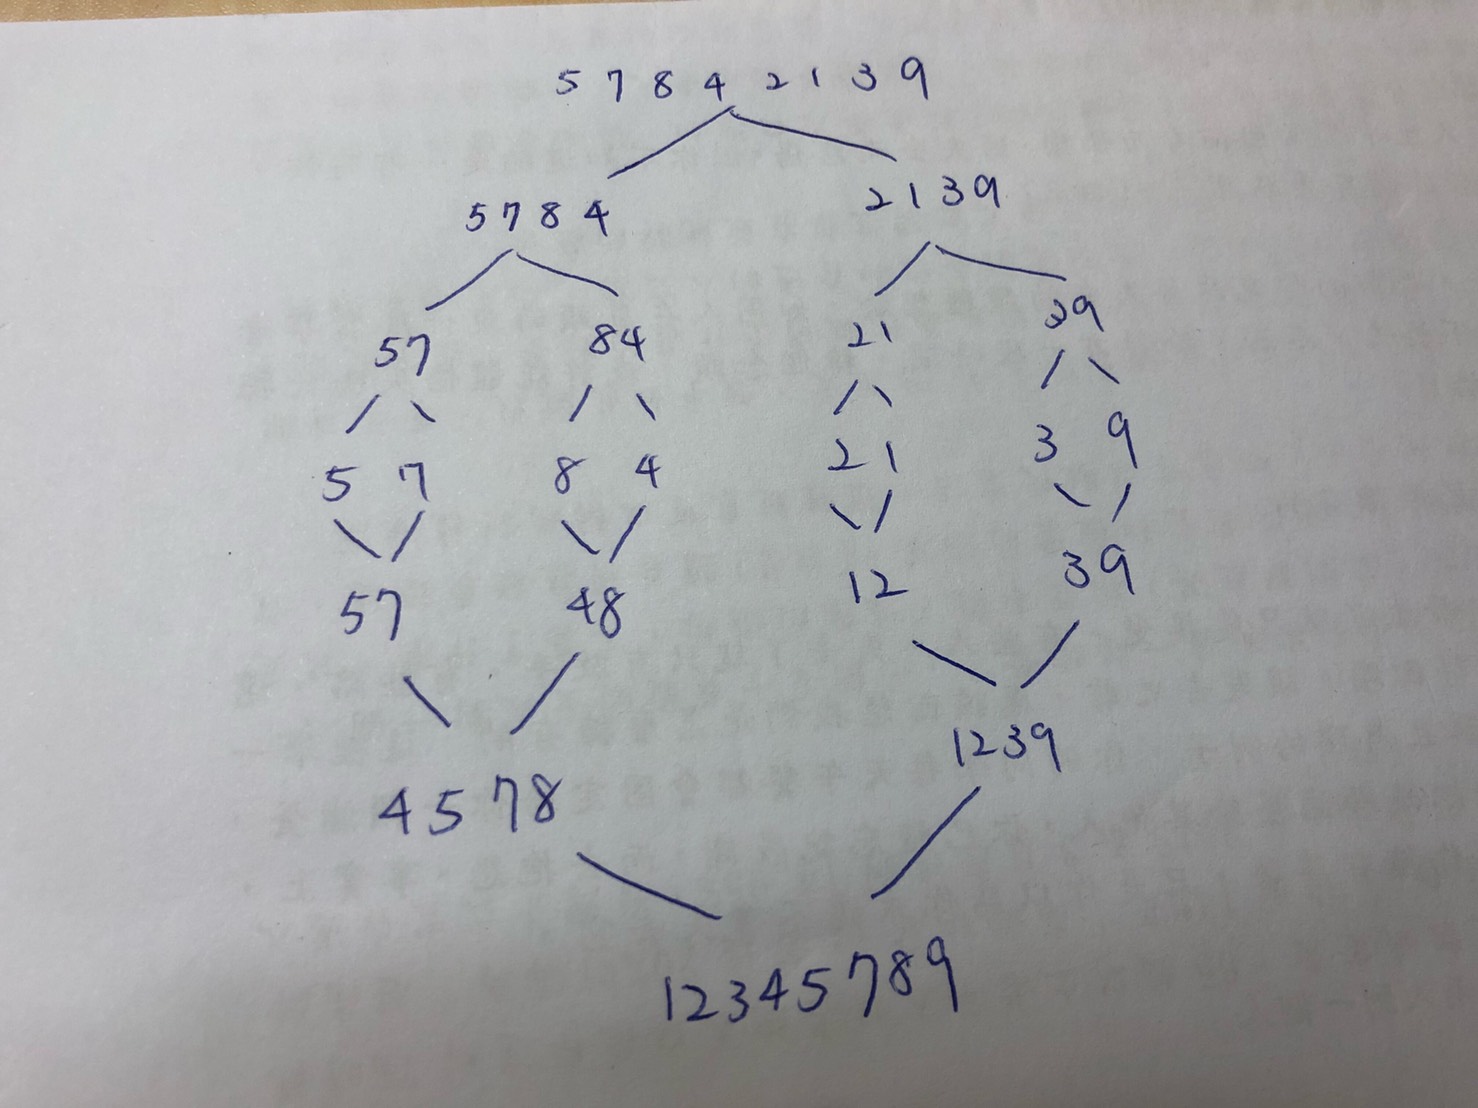 5 7 8 4 2 1 3 9
5784 2139
57 84 21 29
5 7 8 4 2 1 3 9
57 48 12 39
4578 1239
12345789